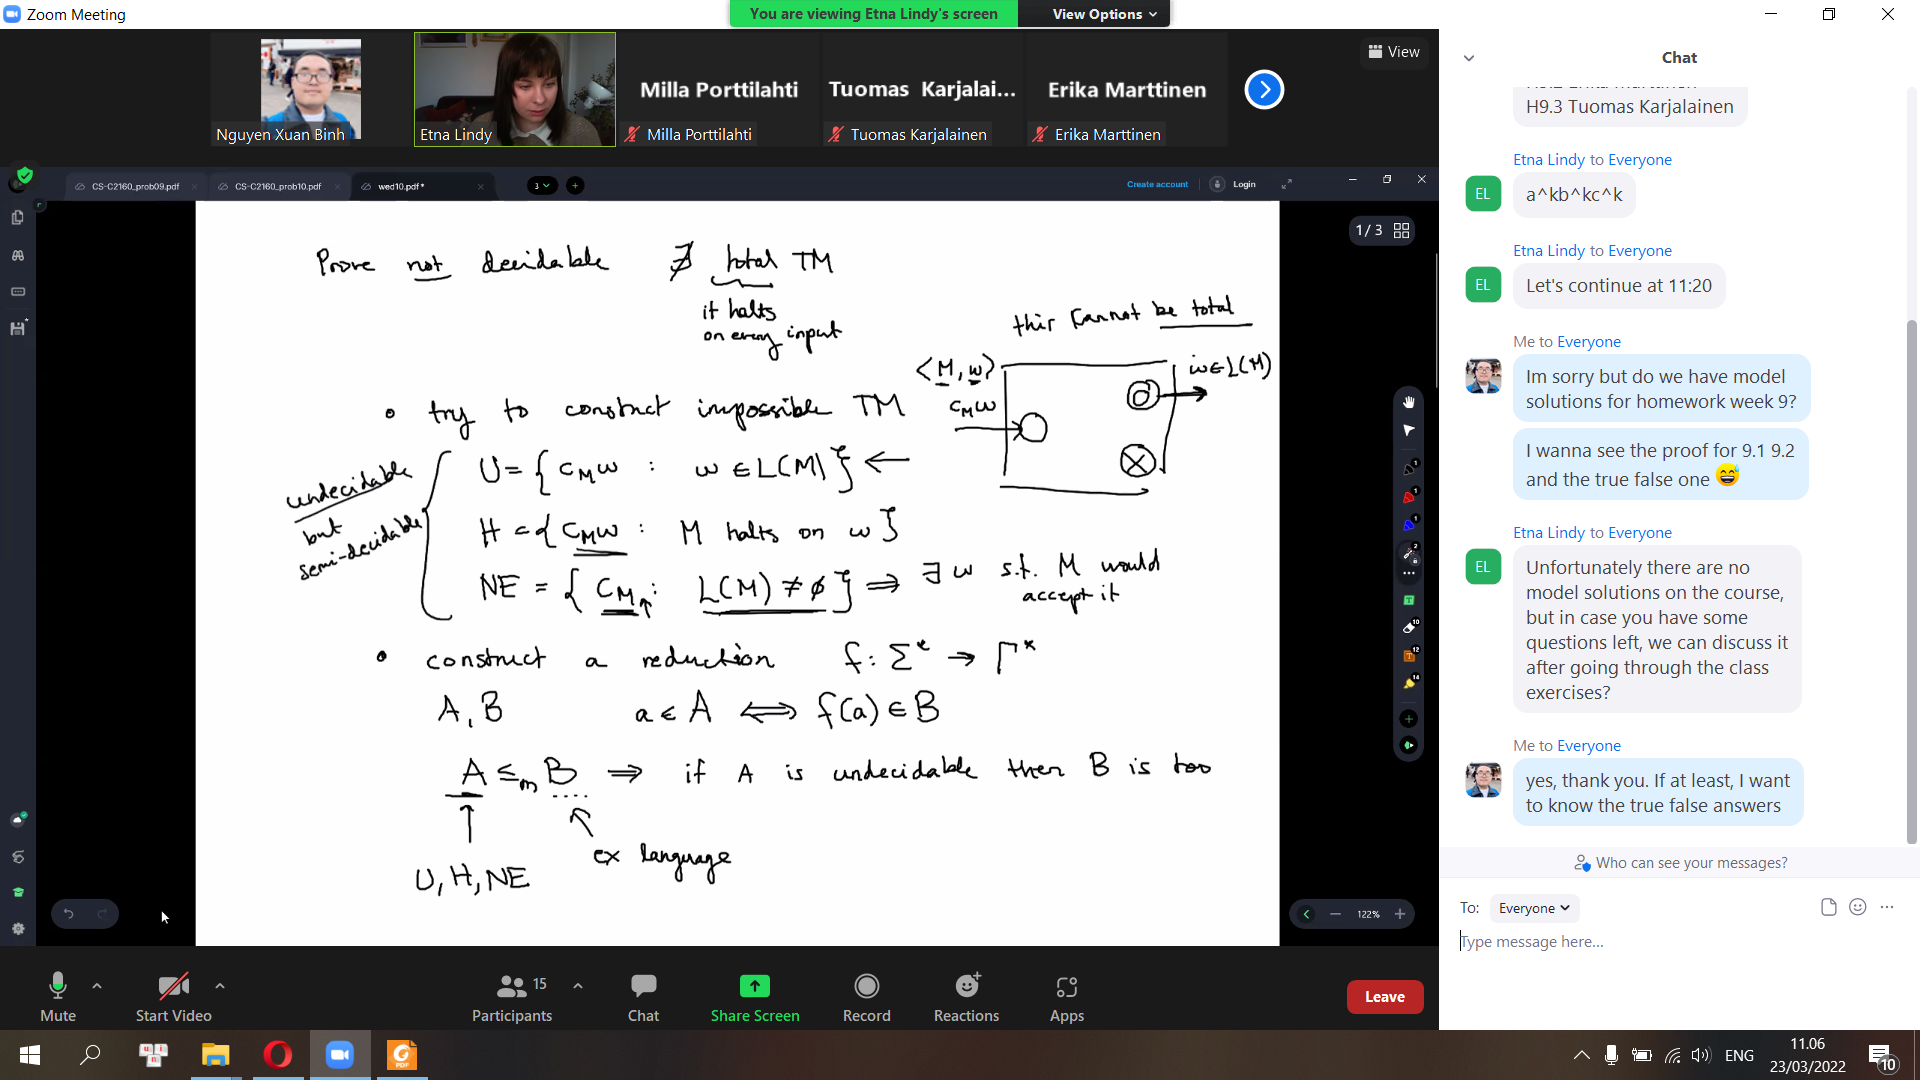 Zoom Meeting
You are viewing Etna Lindy's screen
View Options
View
Nguyen Xuan Binh
Etna Lindy
Milla Porttilahti
Milla Porttilahti
Tuomas Karjalai...
Tuomas Karjalainen
Erika Marttinen
Erika Marttinen
CS-C2160_prob09.pdf
CS-C2160_prob10.pdf
wed10.pdf*
3
Create account
Login
1 / 3
Prove not decidable ∄ total TM
it halts
on every input
this cannot be total
<M, w>
C_M w
w ∈ L(M)
• try to construct impossible TM
undecidable
but
semi-decidable
U = { C_M w : w ∈ L(M) } ←
H = { C_M w : M halts on w }
NE = { C_M : L(M) ≠ ∅ } ⇒ ∃ w s.t. M would
accept it
• construct a reduction f : Σ* → Γ*
A, B a ∈ A ⟺ f(a) ∈ B
A ≤_m B ⇒ if A is undecidable then B is too
ex language
U, H, NE
122%
Mute
Start Video
15
Participants
Chat
Share Screen
Record
Reactions
Apps
Leave
Chat
H9.3 Tuomas Karjalainen
Etna Lindy to Everyone
EL
a^kb^kc^k
Etna Lindy to Everyone
EL
Let's continue at 11:20
Me to Everyone
Im sorry but do we have model
solutions for homework week 9?
I wanna see the proof for 9.1 9.2
and the true false one 😅
Etna Lindy to Everyone
EL
Unfortunately there are no
model solutions on the course,
but in case you have some
questions left, we can discuss it
after going through the class
exercises?
Me to Everyone
yes, thank you. If at least, I want
to know the true false answers
Who can see your messages?
To: Everyone
Type message here...
ENG
11.06
23/03/2022
10